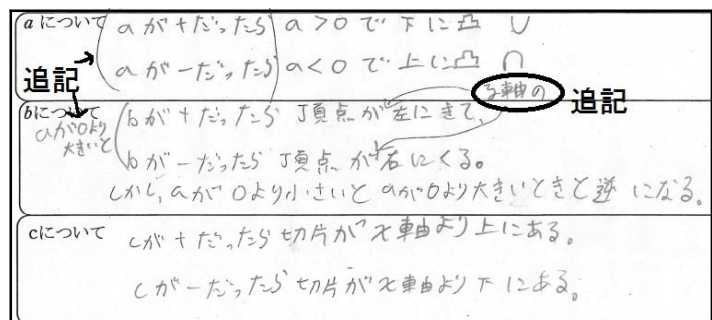 aについて aが+だったら a>0で下に凸 ∪
追記 aが-だったら a<0で上に凸 ∩
y軸の 追記
bについて bが+だったら 頂点が左にきて、
aが0より大きいと
bが-だったら 頂点が右にくる。
しかし、aが0より小さいとaが0より大きいときと逆になる。
cについて cが+だったら切片がx軸より上にある。
cが-だったら切片がx軸より下にある。